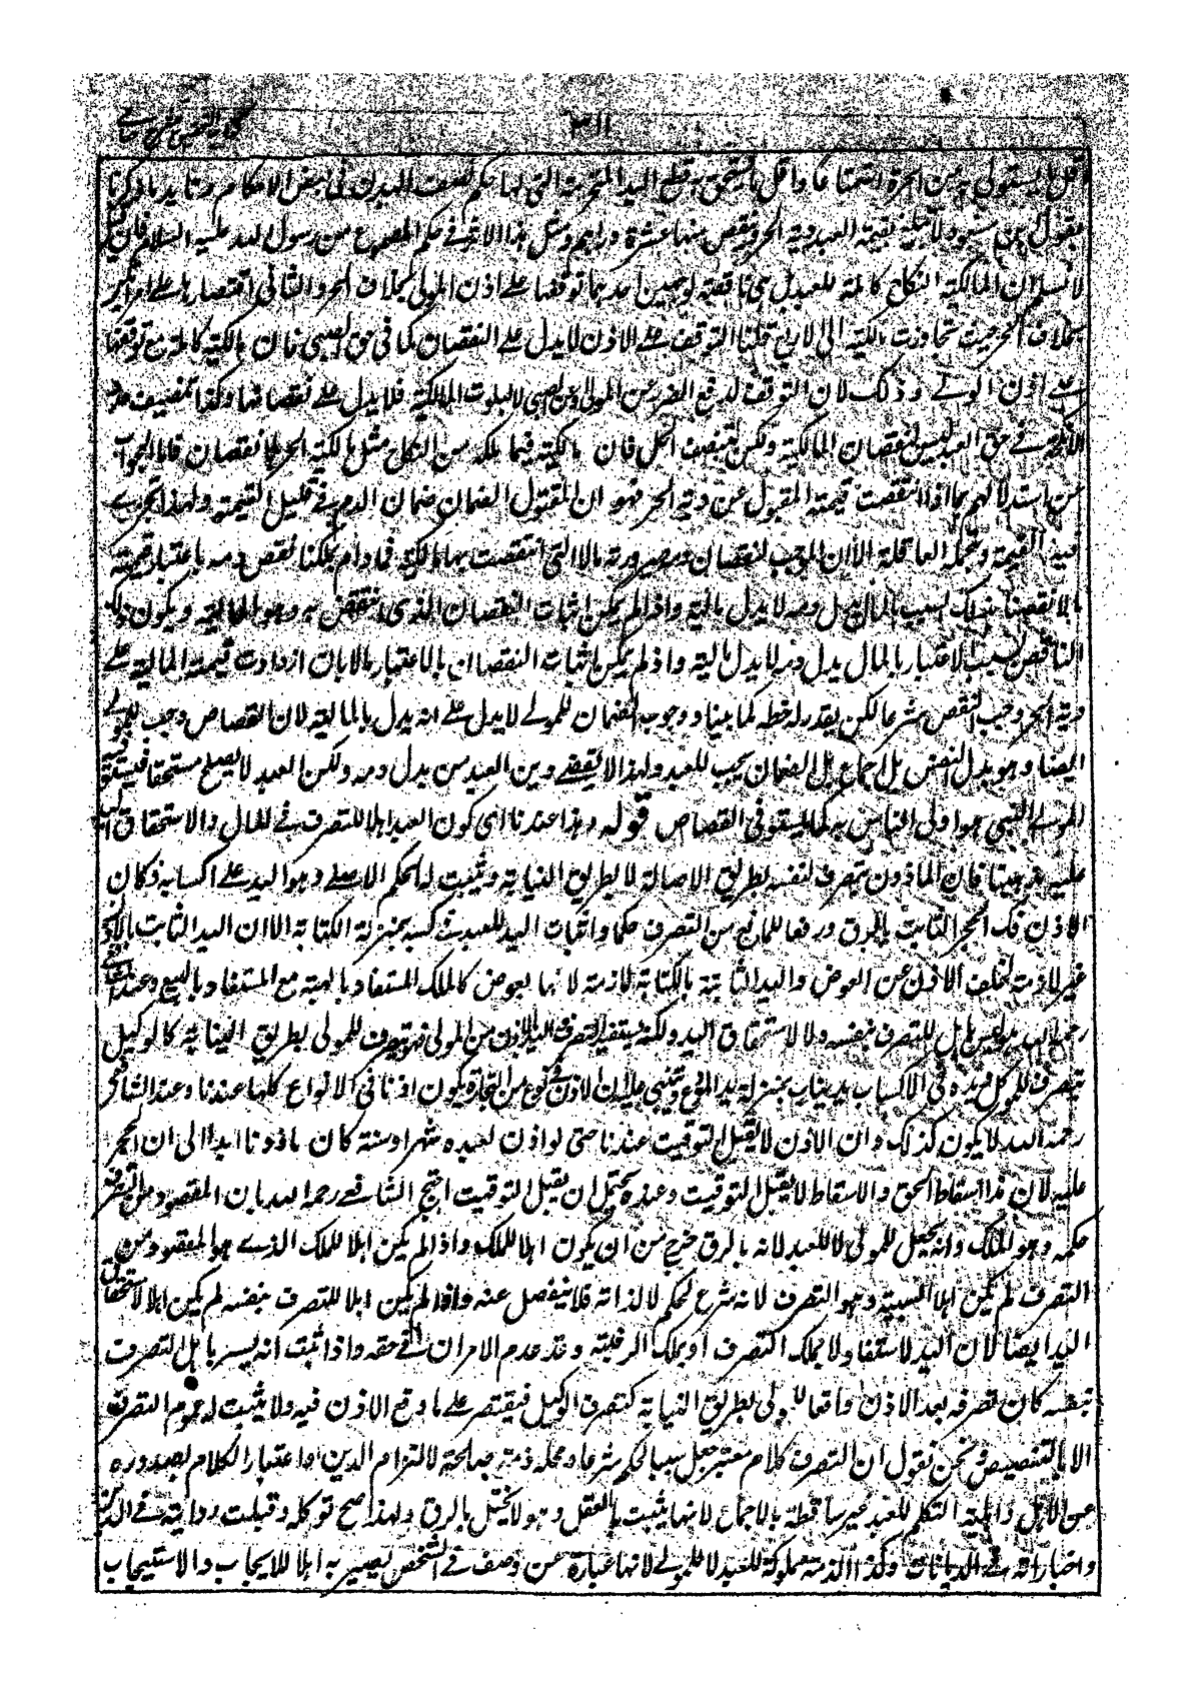 ٣١١
اقل ما يستولي به من الحرة استمتاعا واقل ما يستحق به قطع اليد المحترمة التي لها حكم نصف البدل في بعض الاحكام وتايد ما ذكرنا
بقول ابن مسعود لا تبلغ بقيمة العبد دية الحر وينقص منها عشرة دراهم ومثل هذا الاثر في حكم المسموع من رسول الله عليه السلام فان قيل
لا نسلم ان المالكية النكاح كاملة للعبد بل هي ناقصة لوجهين احدهما توقفها على اذن المولى بخلاف الحر والثاني اقتصارها على امرأتين
بخلاف الحر حيث تجاوزت مالكيته الى الاربع قلنا التوقف على الاذن لا يدل على النقصان كما في حق الصبي فان مالكيته كاملة مع توقفها
على اذن الولي وذلك لان التوقف لدفع الضرر عن المولى وعن الصبي لا لثبوت المالكية فلا يدل على نقصانها وكذا تنصيف عدد
الانكحة في حق العبد ليس لنقصان المالكية ولكن لتنصف الحل فان مالكيته فيما ملكه من النكاح مثل مالكية الحر بلا نقصان فاما الجواب
عن استدلالهم بما اذا انتقصت قيمة المقتول عن دية الحر فهو ان المقتول الضمان ضمان الدم في قليل القيمة ولهذا تجري
فيه القيمة وتحمله العاقلة الا ان الموجب لنقصان دمه صيرورته مالا التي انتقصت بها مالكيته فما دام يمكننا نقص دمه باعتبار قيمته
مالا نقصنا بذلك لسبب بالمال بدل دمه لا بدل ماليته واذا لم يكن اثبات النقصان الذي انتقض به وهو المالية ويكون ذلك
الناقص لسبب الاعتبار بالمال بدل دم لا بدل مالية واذ لم يكن اثبات النقصان بالاعتبار بالا بان ازدادت قيمة المالية على
دية الحر وجب النقص شرعا لكن بقدر له خطر كما بينا ووجوب الضمان للمولى لا يدل على انه بدل بالمالية لان القصاص وجب للمولى
ايضا وهو بدل النفس بل اجماع بل الضمان يجب للعبد ولهذا لا يقضى دين العبد من بدل دمه ولكن العبد لا يصلح مستحقا فيستوفيه
المولى الذي هو اولى الناس به كما يستوفي القصاص قوله وهذا عندنا اى كون العبد اهلا للتصرف في المال والاستحقاق اليد
عليه مذهبنا فان الماذون يتصرف لنفسه بطريق الاصالة لا بطريق النيابة ويثبت له الحكم الاصلي وهو اليد على اكسابه وكان
الاذن فك الحجر الثابت بالرق ورفعا للمانع من التصرف حكما واثبات اليد للعبد في كسبه بمنزلة الكتابة الا ان اليد الثابت بالاذن
غير لازمة لخلف الاذن عن العوض واليد الثابتة بالكتابة لازمة لانها بعوض كالملك المستفاد بالهبة مع المستفاد بالبيع وعند الشافعي
رحمه الله ليس باهل للتصرف بنفسه ولا لاستحقاق اليد ولكنه يستفيد التصرف واليد بالاذن من المولى فهو يتصرف للمولى بطريق النيابة كالوكيل
يتصرف للموكل ويده في الاكساب يد نيابة بمنزلة يد المودع ويبتنى عليه ان الاذن في نوع من التجارة يكون اذنا في الانواع كلها عندنا وعند الشافعي
رحمه الله لا يكون كذلك وان الاذن لا يقبل التوقيت عندنا حتى لو اذن لعبده شهرا او سنة كان ماذونا ابدا الى ان الحجر
عليه لان هذا اسقاط الحق والاسقاط لا يقبل التوقيت وعنده يحتمل ان يقبل التوقيت احتج الشافعي رحمه الله بان المقصود من التصرف
حكمه وهو الملك وانه يحصل للمولى لا للعبد لانه بالرق خرج من ان يكون اهلا للملك واذا لم يكن اهلا للملك الذي هو المقصود من
التصرف لم يكن اهلا لسببه وهو التصرف لانه شرع لحكمه لا لذاته فلا ينفصل عنه واذا لم يكن اهلا للتصرف بنفسه لم يكن اهلا لاستحقاق
اليد ايضا لان اليد لا تستفاد الا بملك التصرف او بملك الرقبة وقد عدم الامران في حقه واذا ثبت انه ليس باهل للتصرف
بنفسه كان تصرفه بعد الاذن واقعا للمولى بطريق النيابة كتصرف الوكيل فيقتصر على ما وقع الاذن فيه ولا يثبت له عموم التصرف
الا بالتنصيص ونحن نقول ان التصرف كلام معتبر جعل سببا لحكم شرعا ومحله ذمة صالحة لالتزام الدين اما اعتبار الكلام لصدوره
عن الاهل واهلية التكلم للعبد غير ساقطة بالاجماع لانها يثبت بالعقل وهو لا يختل بالرق ولهذا صح توكله وقبلت روايته في الدين
واخباراته في الديانات وكذا الذمة مملوكة للعبد لا للمولى لانها عبارة عن وصف في الشخص يصير به اهلا للايجاب والاستيجاب